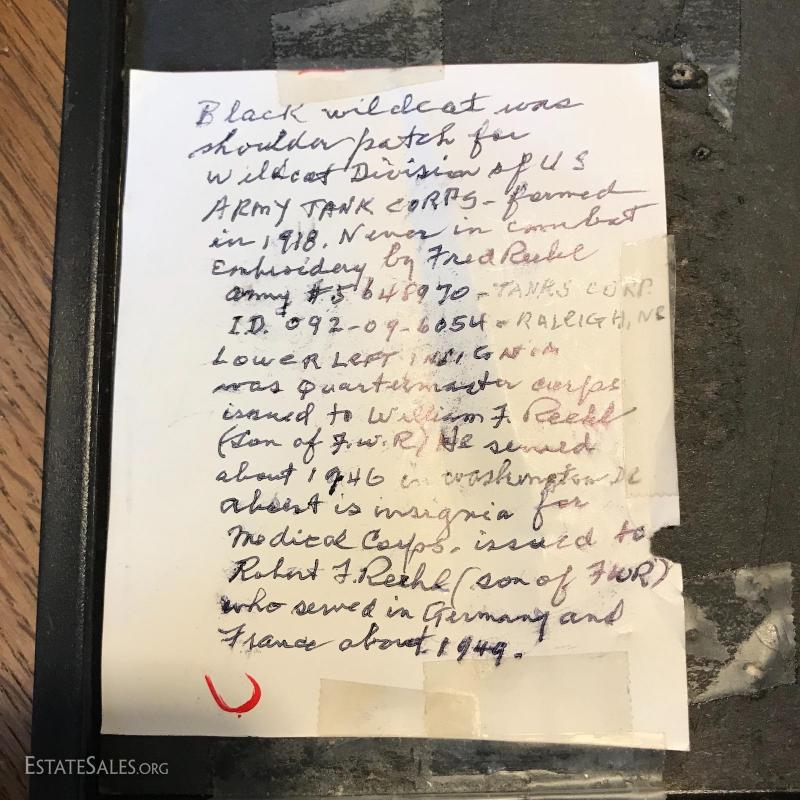 Black wildcat was
shoulder patch for
wildcat Division of US
ARMY TANK CORPS - formed
in 1918. Never in combat
Embroidery by Fred Reehl
army # 5648970 - TANKS CORP.
I.D. 092-09-6054 - RALEIGH, NC
LOWER LEFT INSIGNIA
was Quartermaster corps
issued to William F. Reehl
(Son of F.W.R) He served
about 1946 in washington DC
is insignia for
Medical Corps. issued to
Robert F. Reehl (son of FWR)
who served in Germany and
France about 1949.
ESTATESALES.ORG